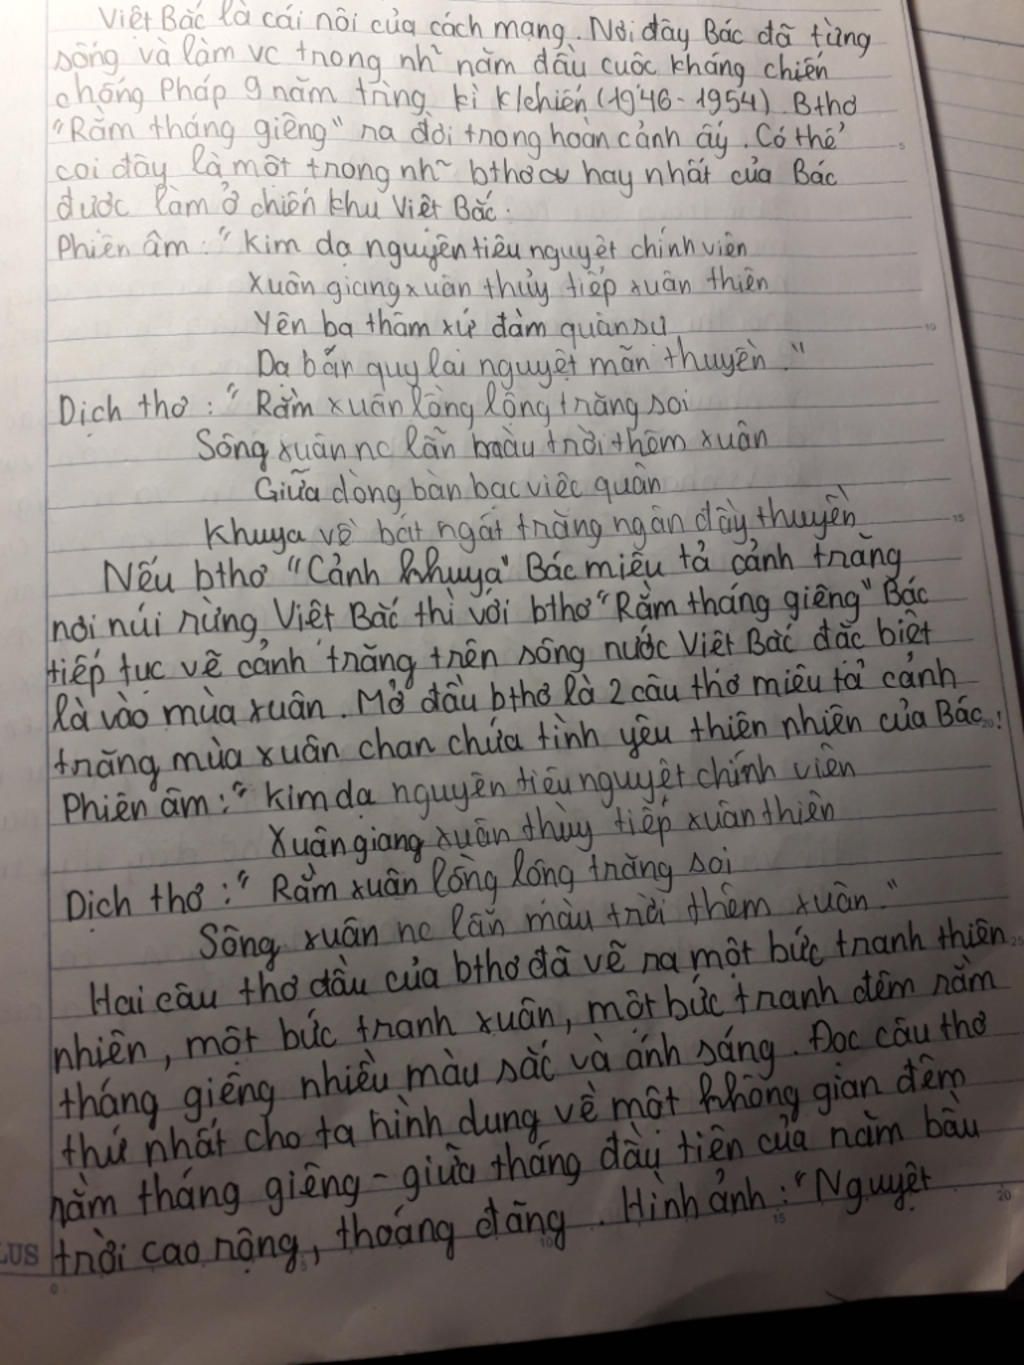 Việt Bắc là cái nôi của cách mạng. Nơi đây Bác đã từng
sống và làm vc trong nh~ năm đầu cuộc kháng chiến
chống Pháp 9 năm trừng kì k/chiến (1946-1954). Bthơ
"Rằm tháng giêng" ra đời trong hoàn cảnh ấy. Có thể
coi đây là một trong nh~ bthơ hay nhất của Bác
được làm ở chiến khu Việt Bắc.
Phiên âm: "Kim dạ nguyên tiêu nguyệt chính viên
Xuân giang xuân thủy tiếp xuân thiên
Yên ba thâm xứ đàm quân sự
Dạ bán quy lai nguyệt mãn thuyền."
Dịch thơ: "Rằm xuân lồng lộng trăng soi
Sông xuân nc lẫn màu trời thêm xuân
Giữa dòng bàn bạc việc quân
Khuya về bát ngát trăng ngân đầy thuyền
Nếu bthơ "Cảnh khuya" Bác miêu tả cảnh trăng
nơi núi rừng Việt Bắc thì với bthơ "Rằm tháng giêng" Bác
tiếp tục vẽ cảnh trăng trên sông nước Việt Bắc đặc biệt
là vào mùa xuân. Mở đầu bthơ là 2 câu thơ miêu tả cảnh
trăng mùa xuân chan chứa tình yêu thiên nhiên của Bác:
Phiên âm: "Kim dạ nguyên tiêu nguyệt chính viên
Xuân giang xuân thủy tiếp xuân thiên
Dịch thơ: "Rằm xuân lồng lộng trăng soi
Sông xuân nc lẫn màu trời thêm xuân."
Hai câu thơ đầu của bthơ đã vẽ ra một bức tranh thiên
nhiên, một bức tranh xuân, một bức tranh đêm rằm
tháng giêng nhiều màu sắc và ánh sáng. Đọc câu thơ
thứ nhất cho ta hình dung về một không gian đêm
rằm tháng giêng - giữa tháng đầu tiên của năm bầu
trời cao rộng, thoáng đãng. Hình ảnh: "Nguyệt